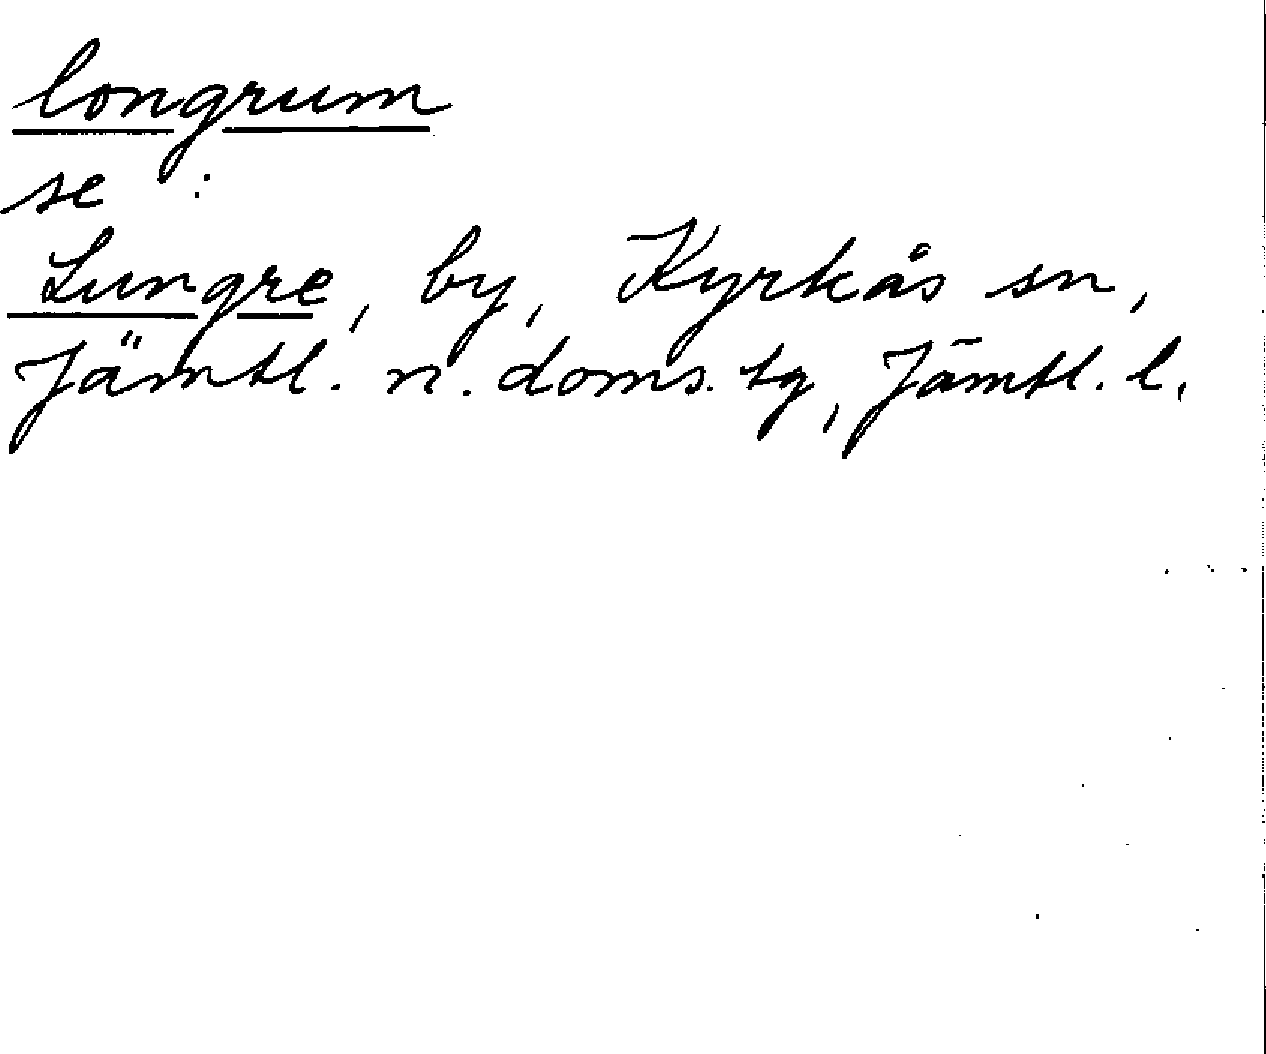 longrum
se :
Lungre, by, Kyrkås sn,
Jämtl. n. doms. tg, Jämtl. l.